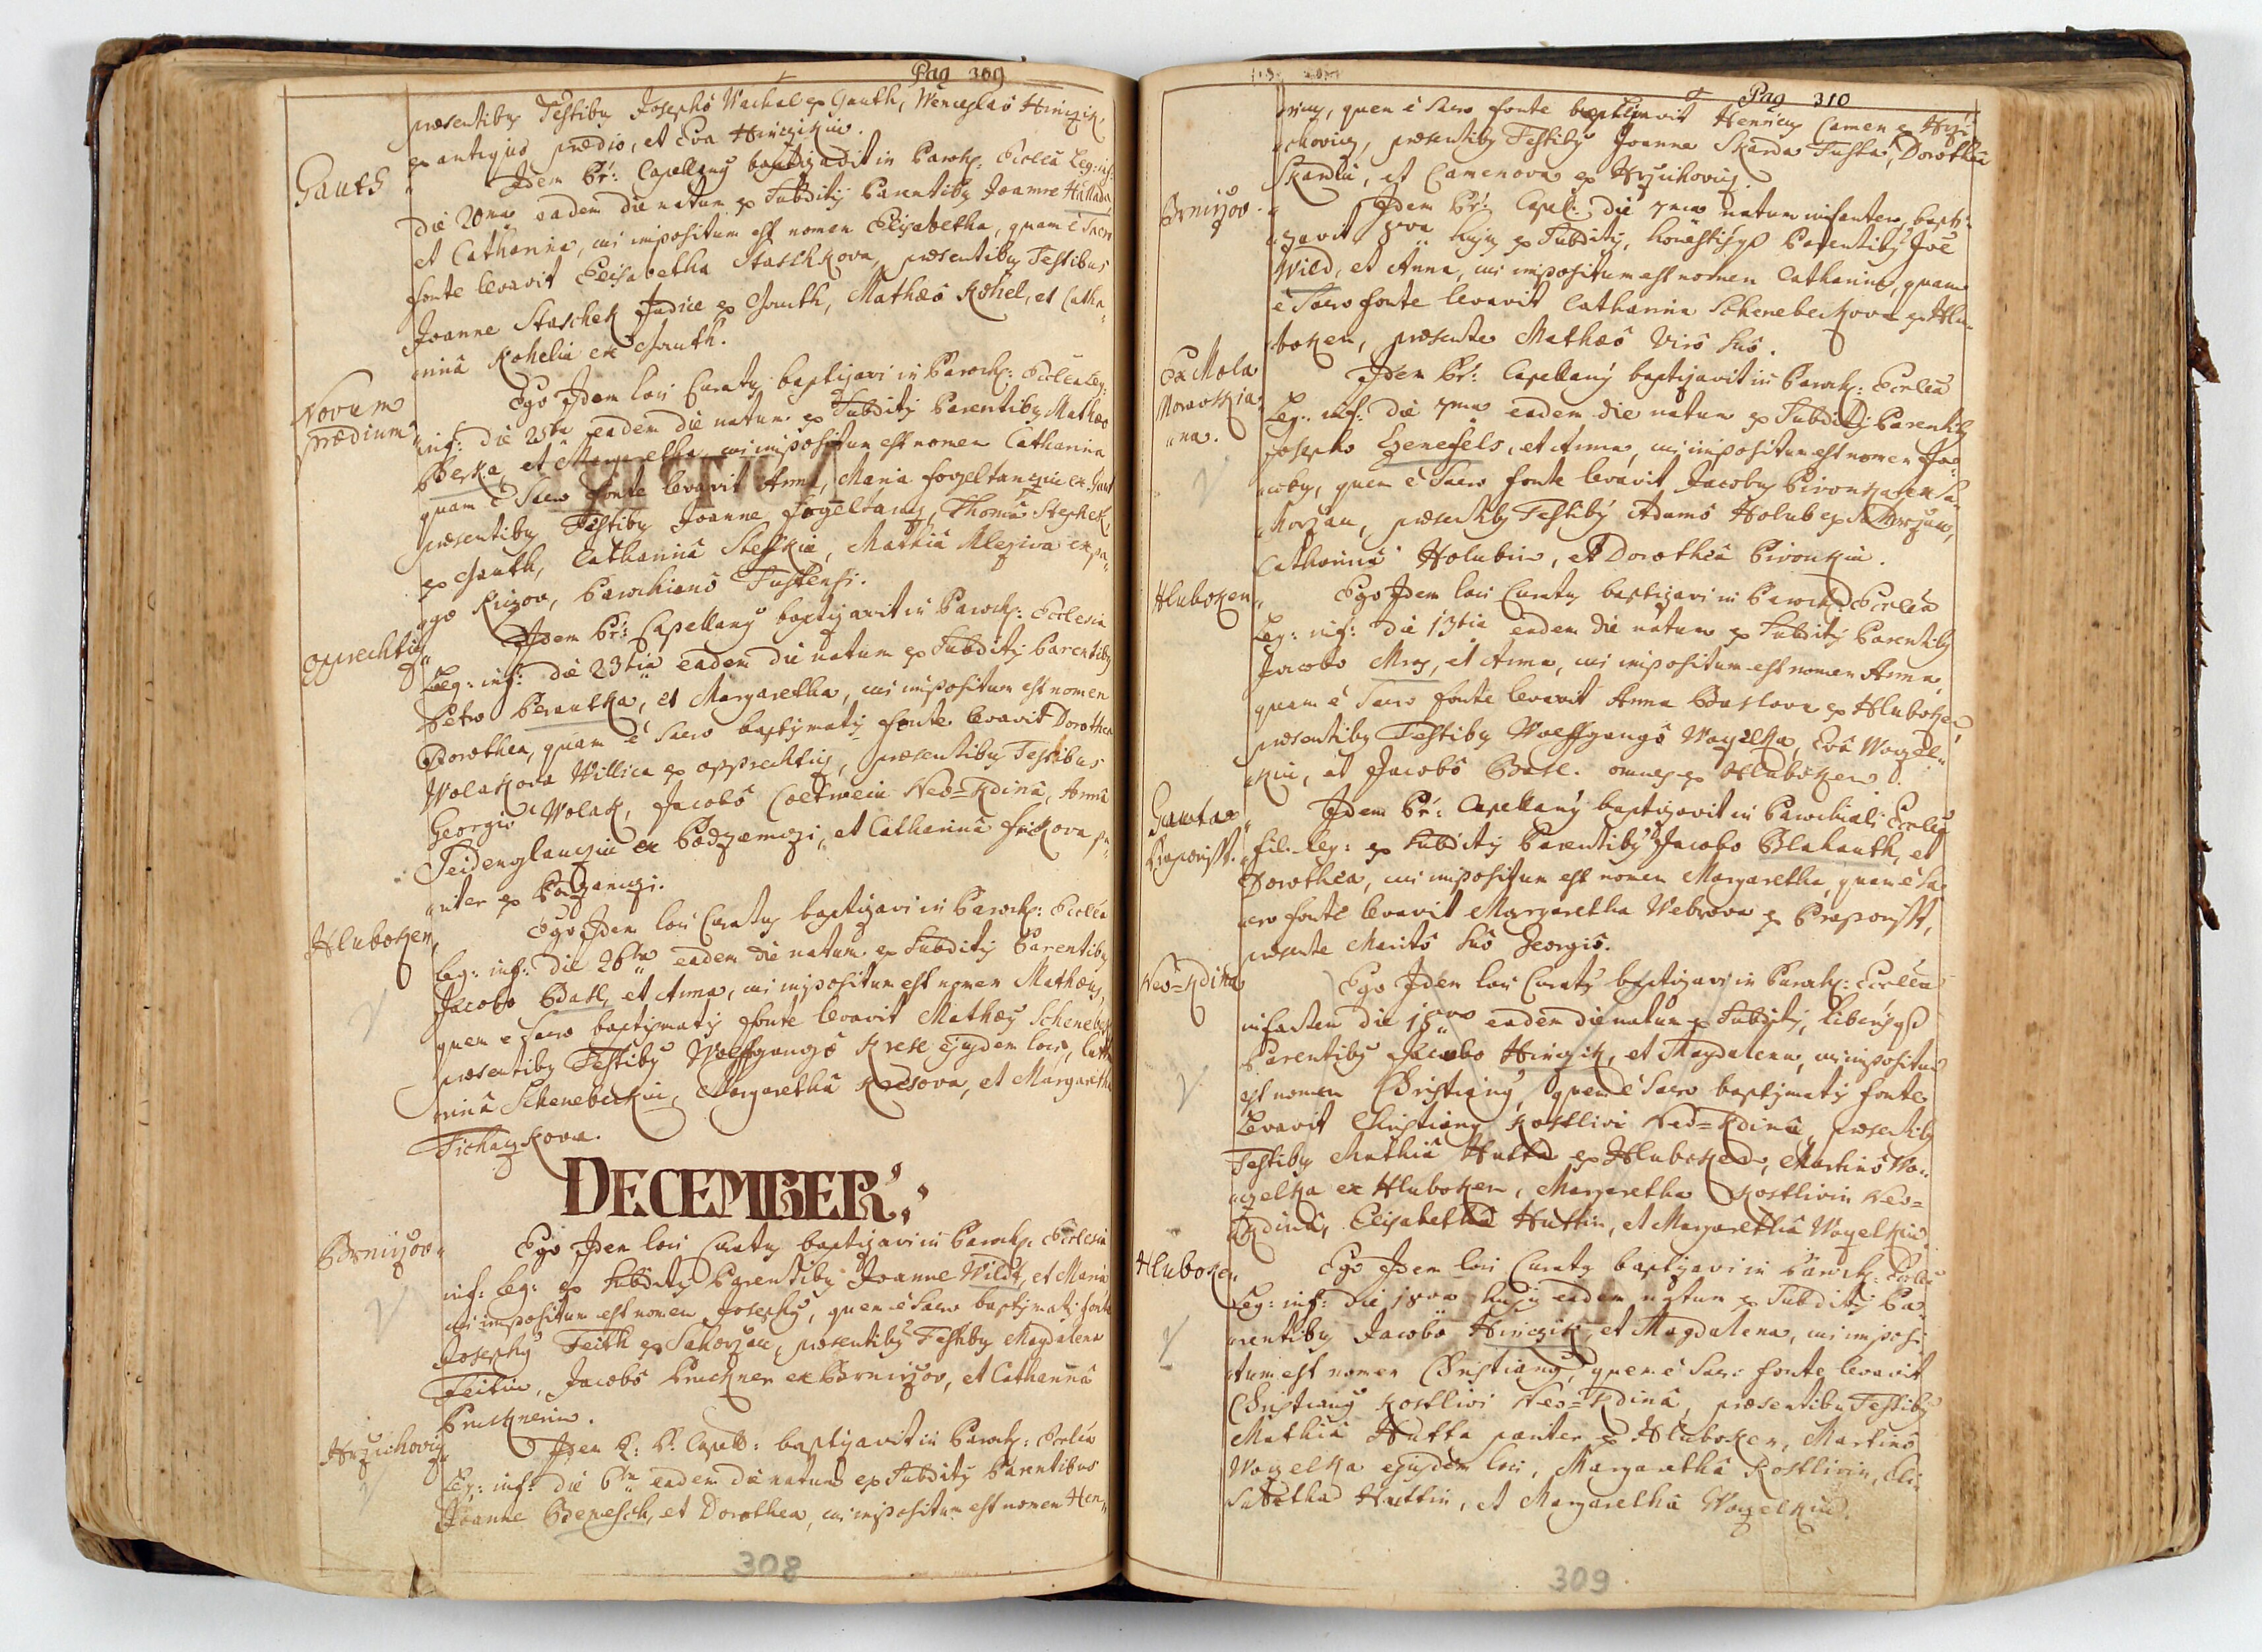 Pag 309
præsentibus Testibus Josepho Wachal ex Gauth, Wenceslao Hinczik
ex antiquo prædio, et Eva Hinczikin.
Gauth
Idem Pr: Capellanus baptizavit in Paroch: Ecclia Leg: inf:
die 20ma eadem die natum ex Subditis Parentibus Joanne
et Catharina, cui impositum est nomen Elisabetha, quam è Sacro
fonte levavit Elisabetha Staschkova, præsentibus Testibus
Joanne Staschek Judice ex Gauth, Mathæo Kohel, et Catha-
rinâ Kohelin ex Gauth.
Novum
prædium
Ego Idem loci Curatus baptizavi in Paroch: Ecclia Leg:
inf: die 25ta eadem die natum ex Subditis Parentibus Mathæo
Peska, et Margaretha, cui impositum est nomen Catharina
quam è Sacro fonte levavit Anna, Maria Fogeltanczin ex Gauth
præsentibus Testibus Joanne Fogeltanz, Thoma Stephek,
ex Gauth, Catharinâ Steffkin, Mathia Klegiva ex pa-
go Krizov, Parochiano Tustensi.
Opprechtiz
Idem Pr: Capellanus baptizavit in Paroch: Ecclesia
Leg: inf: die 23tia eadem die natum ex Subditis Parentibus
Petro Perautka, et Margaretha, cui impositum est nomen
Dorothea, quam è Sacro baptismatis fonte levavit Dorothea
Wolakova Willica ex Opprechtiz, præsentibus Testibus
Georgio Wolak, Jacobo Neo-Kdinâ, Annâ
Seidenglanczin ex Podzamczi, et Catharinâ Frickova pa-
riter ex Podzamczi.
Hluboken
Ego Idem loci Curatus baptizavi in Paroch: Ecclia
Leg: inf: die 26ta eadem die natum ex Subditis Parentibus
Jacobo Basl, et Anna, cui impositum est nomen Mathæus,
quem è Sacro baptismatis fonte levavit Mathæus Schenebek
præsentibus Testibus Wolffgango Kresl ejusdem loci, Catha-
rinâ Schenebeckin, Margarethâ Kresova, et Margaretha
Tichaczkova.
DECEMBER
Brnirzov
Ego Idem loci Curatus baptizavi in Paroch: Ecclesia
inf: leg: ex Subditis Parentibus Joanne Wildt, et Maria
cui impositum est nomen Josephus, quem è Sacro baptismatis fonte
Josephus Feith ex Sakorzau, præsentibus Testibus Magdalena
Feitin, Jacobo Pruckner ex Brnirzov, et Catharinâ
Prucknerin.
Hrzichoviz
Idem P: P: Capell: baptizavit in Paroch: Ecclia
Leg: inf: die 6ta eadem die natum ex Subditis Parentibus
Joanne Benesch, et Dorothea, cui impositum est nomen Hen-
308
Pag 310
ricus, quem è Sacro fonte levavit Henricus Camen ex Hrzi-
choviz, præsentibus Testibus Joanne Skarda Tusta, Dorothea
Skardin, et Camenova ex Hrzichoviz.
Brnirzov
Idem Pr: Capel: die 7ma natum infantem bapti-
zavit 8va hujus ex Subditis, honestisque Parentibus Joe
Wild, et Anna, cui impositum est nomen Catharina, quam
è Sacro fonte levavit Catharina Schenebeckova ex Hlu-
boken, præsente Mathæo Viro Suo.
Ex Mola
Moravskia-
na.
Idem Pr: Capellanus baptizavit in Paroch: Ecclia
Leg: inf: die 7ma eadem die natum ex Subditis Parentibus
Josepho Ezenefels, et Anna, cui impositum est nomen Ja-
cobus, quem è Sacro fonte levavit Jacobus Pivonka ex Sa-
korzau, præsentibus Testibus Adamo Holub ex Sakorzau,
Catharinâ Holubin, et Dorotheâ Pivonkin.
Hluboken
Ego Idem loci Curatus baptizavi in Paroch: Ecclia
Leg: inf: die 13tia eadem die natum ex Subditis Parentibus
Jacobo Mraz, et Anna, cui impositum est nomen Anna,
quam è Sacro fonte levavit Anna Baslova ex Hluboken,
præsentibus Testibus Wolffgango Woyelka, Evâ Woyel-
kin, et Jacobo Basl. omnes ex Hluboken.
Idem Pr: Capellanus baptizavit in Parochiali Ecclia
fil: leg: ex Subditis Parentibus Jacobo Blahauth, et
Dorothea, cui impositum est nomen Margaretha, quam è Sa-
cro fonte levavit Margaretha Webrova ex
præsente Marito Suo Georgio.
Neo-Kdina
Ego Idem loci Curatus baptizavi in Paroch: Ecclia
infantem die 18va eadem die natum ex Subditis, liberisque
Parentibus Jacobo Hinczik, et Magdalena, cui impositum
est nomen Christianus, quem è Sacro baptismatis fonte
Levavit Christianus Kostlivi Neo-Kdinâ, præsentibus
Testibus Mathia Hutta ex Hluboken, Martino Wo-
yelka ex Hluboken, Margaretha Kostlivin Neo-
Kdinâ, Elisabetha Huttin, et Margaretha Woyelkin.
Hluboken
Ego Idem loci Curatus baptizavi in Paroch: Ecclia
Leg: inf: die 18va hujus eadem natum ex Subditis Pa-
rentibus Jacobo Hinczik, et Magdalena, cui imposi-
tum est nomen Christianus, quem è Sacro fonte levavit
Christianus Kostlivi Neo-Kdinâ, præsentibus Testibus
Mathia Hutta pariter ex Hluboken, Martino
Woyelka ejusdem loci, Margaretha Kostlivin, Eli-
sabetha Huttin, et Margaretha Woyelkin.
309